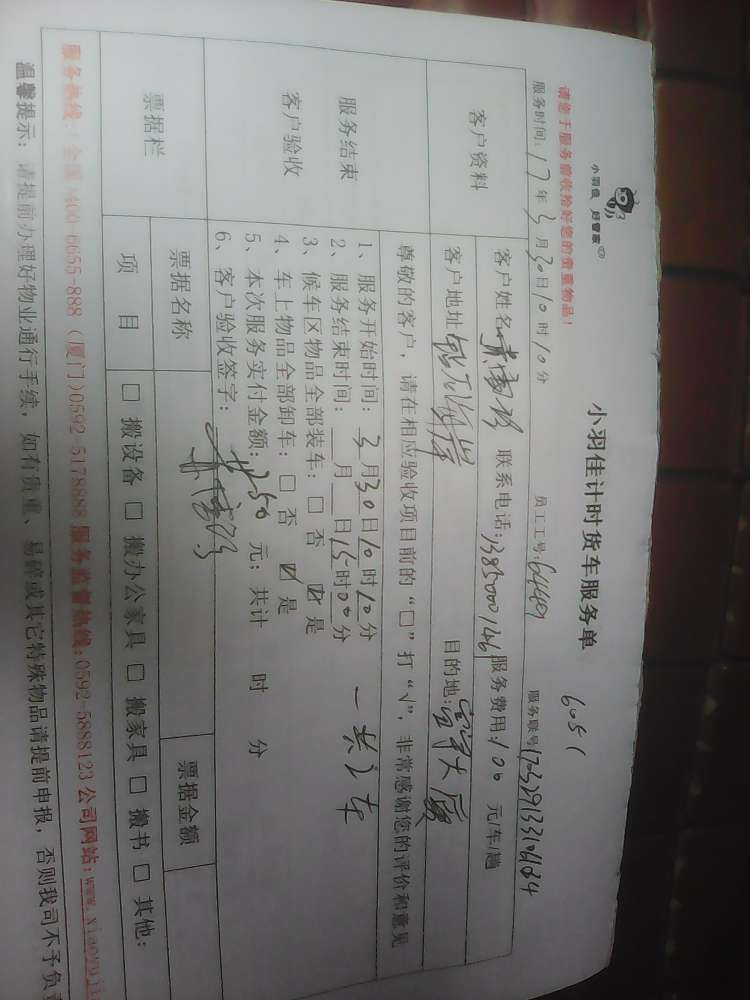 小羽佳 好管家
小羽佳计时货车服务单
6051
请您于服务前收拾好您的贵重物品！
服务时间：17年3月30日10时10分 员工工号：64409 服务账号
客户资料
客户姓名 联系电话： 服务费用：100 元/车/趟
客户地址 海岸 目的地：大厦
尊敬的客户，请在相应验收项目前的“□”打“√”，非常感谢您的评价和意见
服务结束
客户验收
1、服务开始时间：3月30日10时10分
2、服务结束时间：__月__日15时00分
3、候车区物品全部装车：□ 否 ☑ 是
4、车上物品全部卸车：□ 否 ☑ 是
5、本次服务实付金额： 元；共计 时 分
6、客户验收签字：
票据栏
票据名称 票据金额
项 目 □ 搬设备 □ 搬办公家具 □ 搬家具 □ 搬书 □ 其他：
服务热线：全国:400-6655-888（厦门)0592-5178888 服务监督热线:0592-5888123 公司网站:www.xiaoyuji
温馨提示：请提前办理好物业通行手续，如有贵重、易碎或其它特殊物品请提前申报，否则我司不予负